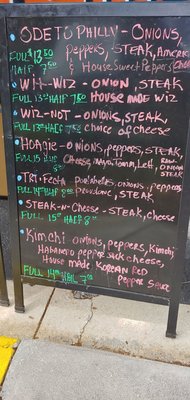 ODE TO PHILLY - ONIONS,
peppers, STEAK, AMERICAN
FULL $13.50
HALF 7.50 & House Sweet Peppers Cheese
WIT-WIZ - ONION, STEAK
FULL 13 HALF 7.50 House made wiz
WIZ-NOT - ONIONS, STEAK,
FULL 13 HALF 7.50 choice of cheese
HOAGIE - ONIONS, peppers, STEAK,
FULL 15 Cheese, Mayo, Tom, Lett, RAW ONION
HALF 8 STEAK
onions, peppers
FULL 14 HALF provolone, STEAK
STEAK-N-CHEESE - STEAK, cheese
FULL 15 HALF 8
Kimchi onions, peppers, Kimchi
Habanero pepper Jack cheese,
House made Korean Red
FULL 14 HALF 7.50 Pepper Sauce